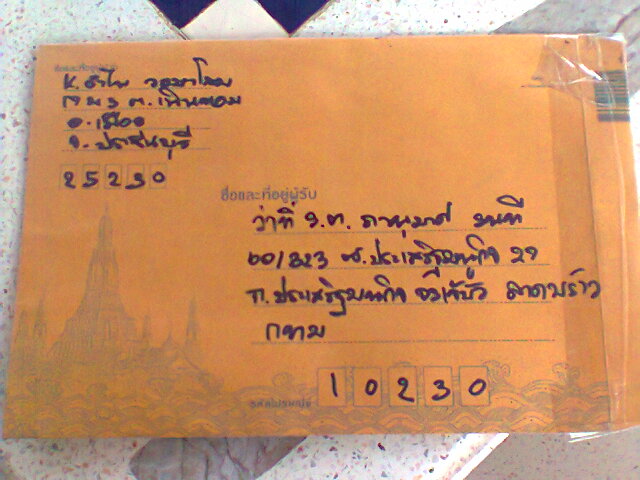 ชื่อและที่อยู่ผู้ส่ง
K. อำไพ
กม 3 ต. เนินหอม
อ. เมือง
จ. ปราจีนบุรี
25230
ชื่อและที่อยู่ผู้รับ
ว่าที่ ร.ต. ภาณุมาศ มนที
60/323 ซ.ประเสริฐมนูกิจ 29
ถ.ประเสริฐมนูกิจ จรเข้บัว ลาดพร้าว
กทม
รหัสไปรษณีย์ 10230